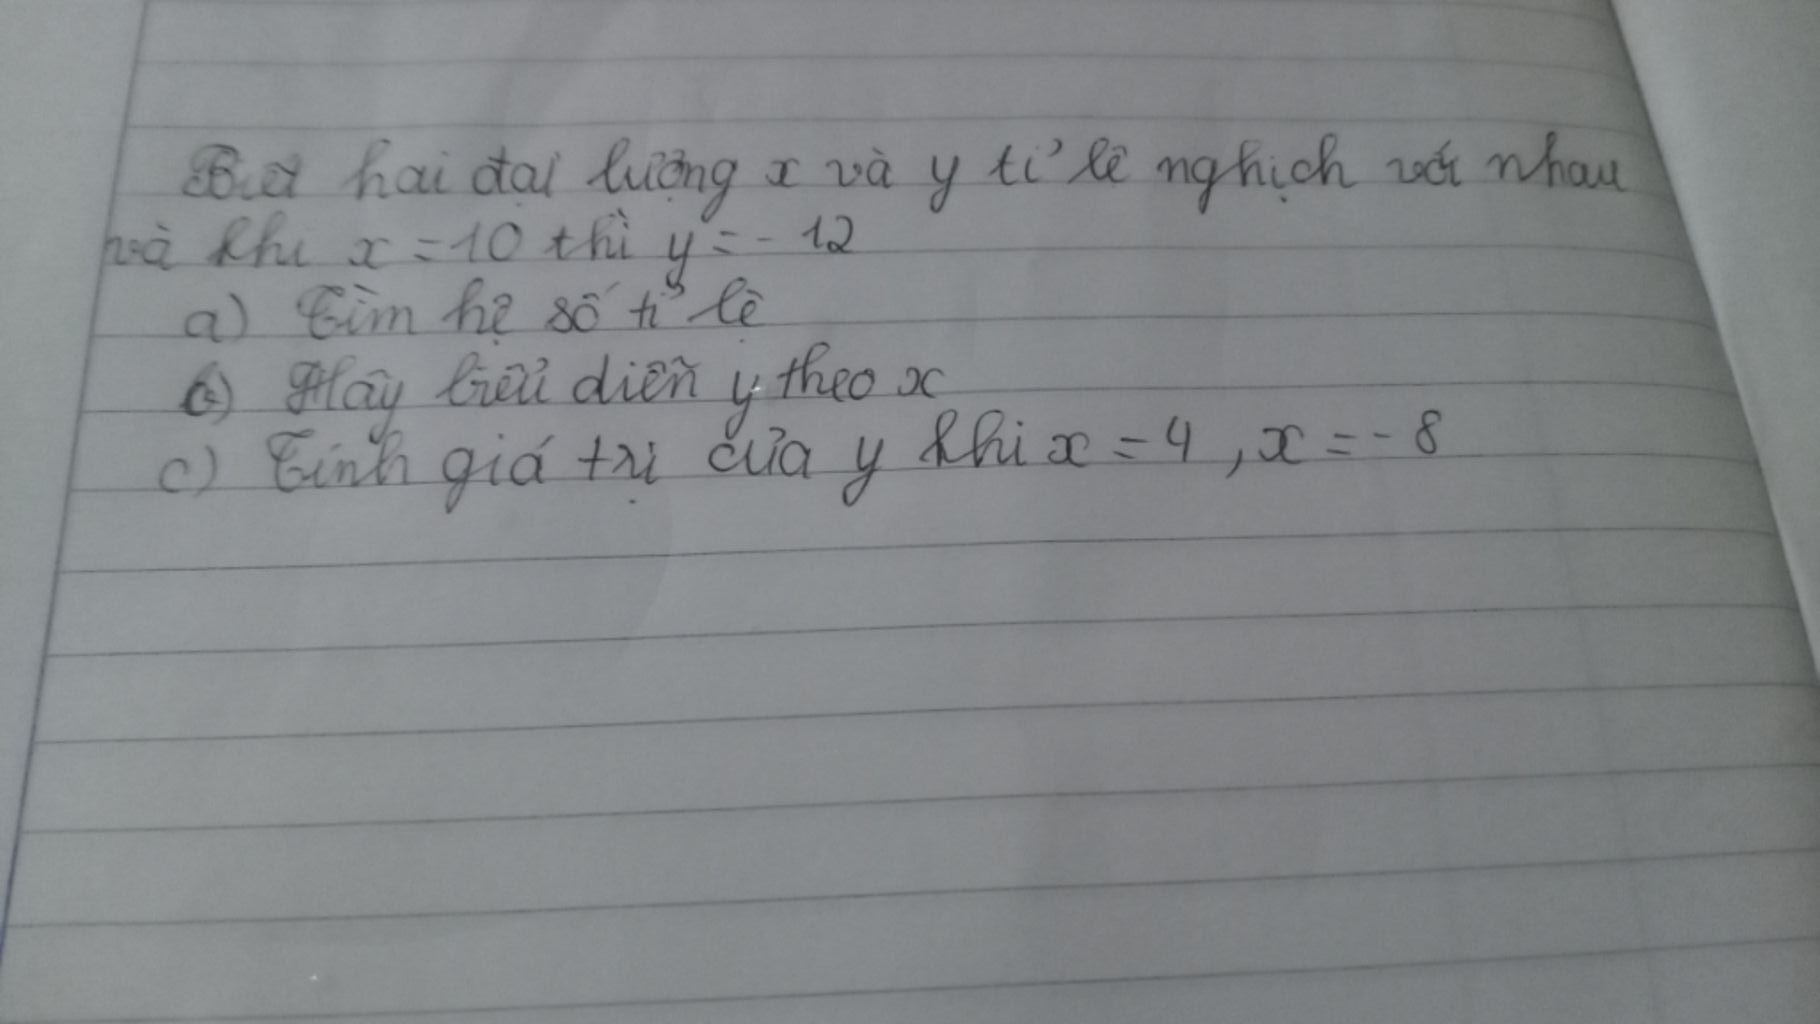 Biết hai đại lượng x và y tỉ lệ nghịch với nhau
và khi x = 10 thì y = - 12
a) Tìm hệ số tỉ lệ
b) Hãy biểu diễn y theo x
c) Tính giá trị của y khi x = 4 , x = - 8